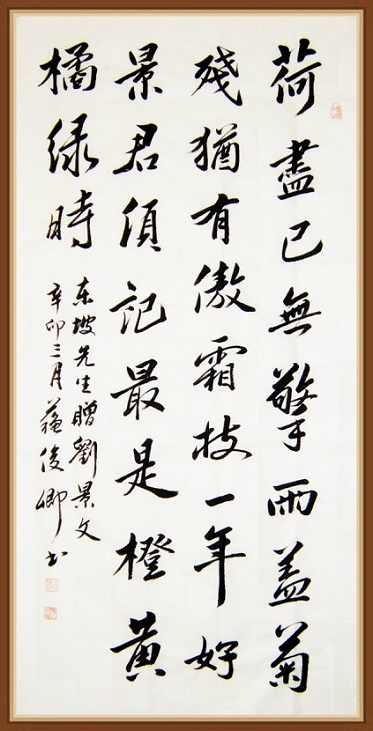 荷盡已無擎雨盖菊
殘猶有傲霜枝一年好
景君須記最是橙黄
橘绿時
东坡先生贈劉景文
辛卯三月蘇俊卿书